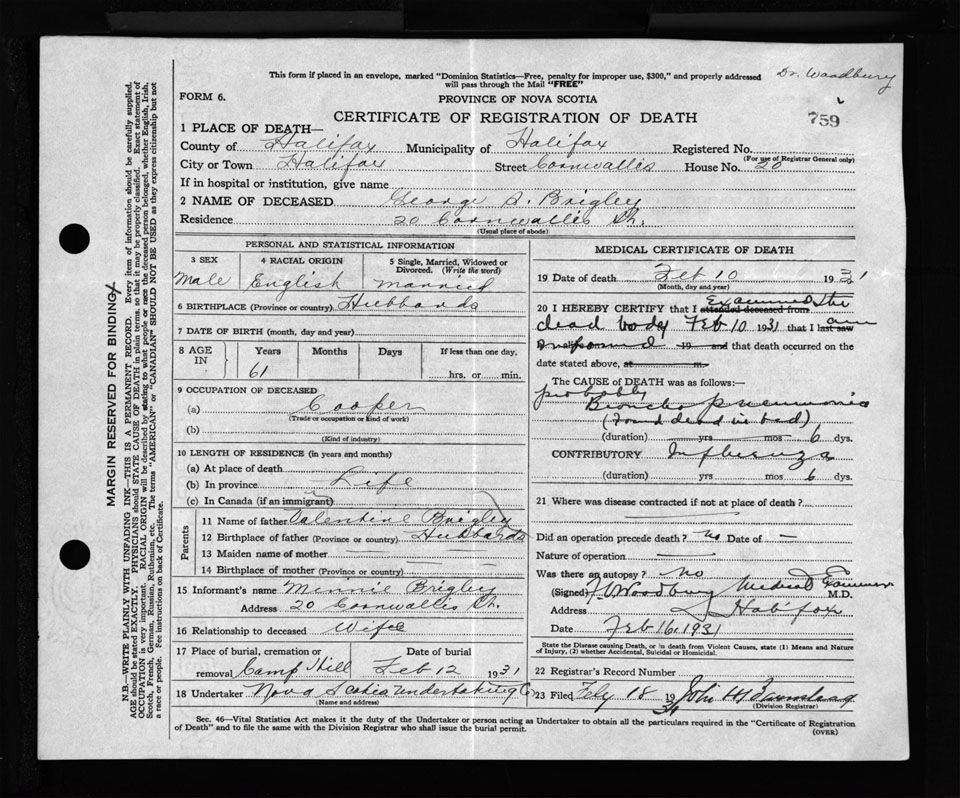 This form if placed in an envelope, marked "Dominion Statistics—Free, penalty for improper use, $300," and properly addressed
will pass through the Mail "FREE"
Dr. Woodbury
FORM 6.
PROVINCE OF NOVA SCOTIA
CERTIFICATE OF REGISTRATION OF DEATH
759
1 PLACE OF DEATH—
County of Halifax Municipality of Halifax Registered No.
(For use of Registrar General only)
City or Town Halifax Street Cornwallis House No. 20
If in hospital or institution, give name
2 NAME OF DECEASED George S. Brigley
Residence 20 Cornwallis St.
(Usual place of abode)
PERSONAL AND STATISTICAL INFORMATION
3 SEX 4 RACIAL ORIGIN 5 Single, Married, Widowed or Divorced. (Write the word)
Male English Married
6 BIRTHPLACE (Province or country) Hubbards
7 DATE OF BIRTH (month, day and year)
8 AGE IN Years Months Days If less than one day.
61 hrs. or min.
9 OCCUPATION OF DECEASED
(a) Cooper
(Trade or occupation or kind of work)
(b)
(Kind of industry)
10 LENGTH OF RESIDENCE (in years and months)
(a) At place of death
(b) In province Life
(c) In Canada (if an immigrant)
Parents
11 Name of father Valentine Brigley
12 Birthplace of father (Province or country) Hubbards
13 Maiden name of mother —
14 Birthplace of mother (Province or country) —
15 Informant's name Minnie Brigley
Address 20 Cornwallis St.
16 Relationship to deceased Wife
17 Place of burial, cremation or removal Camp Hill Date of burial Feb 12 1931
18 Undertaker Nova Scotia Undertaking Co
(Name and address)
MEDICAL CERTIFICATE OF DEATH
19 Date of death Feb 10 1931
(Month, day and year)
20 I HEREBY CERTIFY that I attended deceased from Examined the
dead body Feb 10 1931 that I last saw am
informed 19 and that death occurred on the
date stated above, at m.
The CAUSE of DEATH was as follows:—
probably
Broncho pneumonia
(Found dead in bed)
(duration) yrs mos 6 dys.
CONTRIBUTORY Influenza
(duration) yrs mos 6 dys.
21 Where was disease contracted if not at place of death?
Did an operation precede death? no Date of —
Nature of operation —
Was there an autopsy? no
(Signed) Woodbury Medical Examiner M.D.
Address Halifax
Date Feb 16, 1931
State the Disease causing Death, or in death from Violent Causes, state (1) Means and Nature
of Injury, (2) whether Accidental, Suicidal or Homicidal.
22 Registrar's Record Number
23 Filed Feby 18 1931 John H
(Division Registrar)
Sec. 46—Vital Statistics Act makes it the duty of the Undertaker or person acting as Undertaker to obtain all the particulars required in the "Certificate of Registration
of Death" and to file the same with the Division Registrar who shall issue the burial permit.
(OVER)
MARGIN RESERVED FOR BINDING
N.B.—WRITE PLAINLY WITH UNFADING INK—THIS IS A PERMANENT RECORD. Every item of information should be carefully supplied.
AGE should be stated EXACTLY. PHYSICIANS should STATE CAUSE OF DEATH in plain terms, so that it may be properly classified. Exact statement of
OCCUPATION is very important. RACIAL ORIGIN will be described by stating to what people or race the deceased person belonged, whether English, Irish,
Scotch, French, German, Russian, Ruthenian, etc. The terms "AMERICAN" or "CANADIAN" SHOULD NOT BE USED as they express citizenship but not
a race or people. See instructions on back of Certificate.